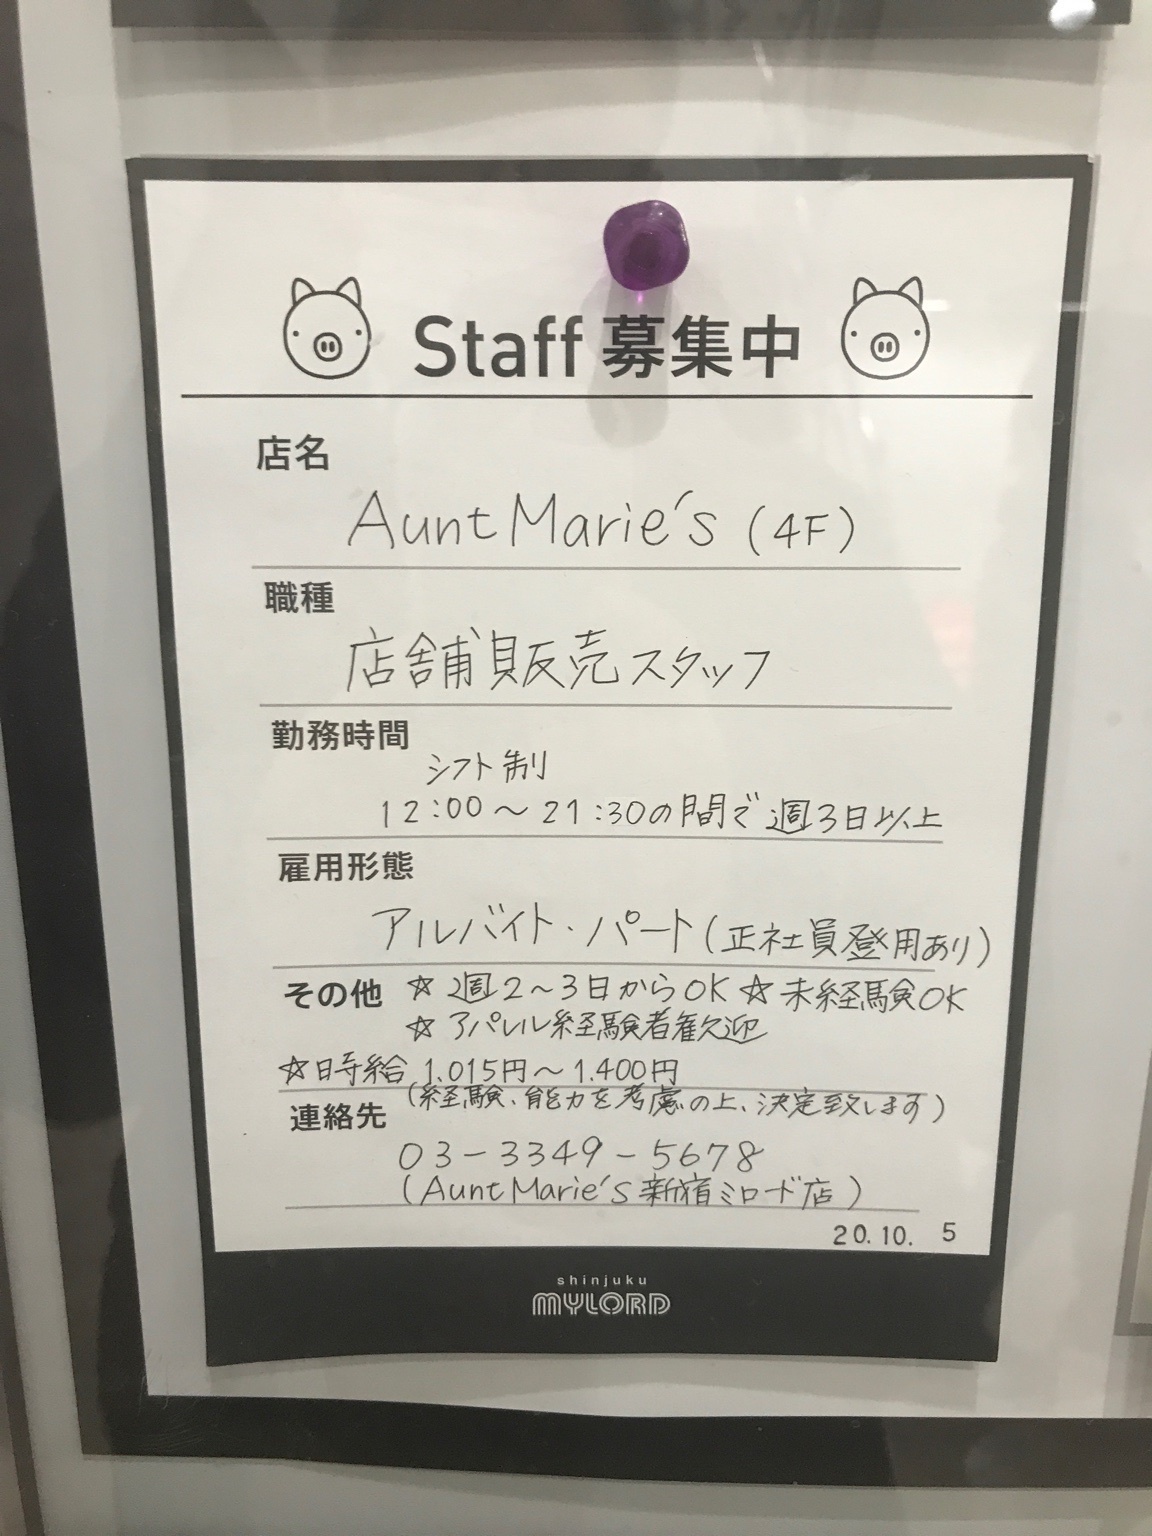 Staff 募集中
店名
Aunt Marie's (4F)
職種
店舗販売スタッフ
勤務時間
シフト制
12:00〜21:30の間で週3日以上
雇用形態
アルバイト・パート(正社員登用あり)
その他 ☆週2〜3日からOK ☆未経験OK
☆アパレル経験者歓迎
☆時給 1.015円〜1.400円
(経験、能力を考慮の上、決定致します)
連絡先
03-3349-5678
(Aunt Marie's 新宿ミロード店)
20.10. 5
shinjuku
MYLORD